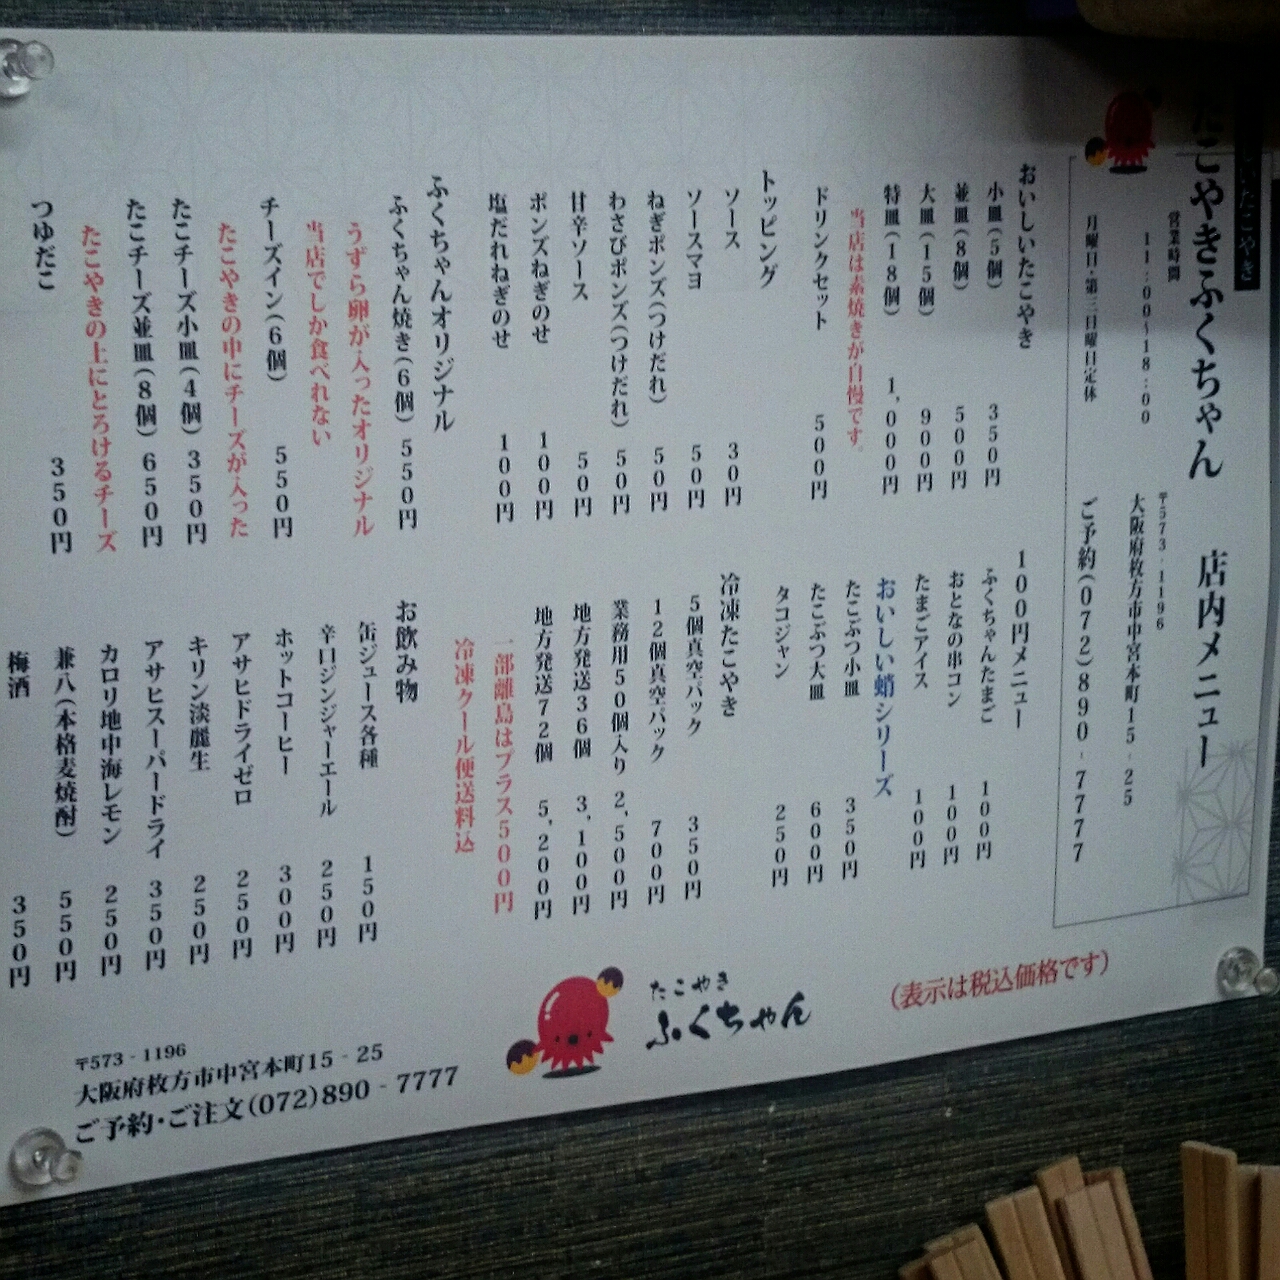 たこやきふくちゃん　店内メニュー
営業時間
11:00～18:00
〒573-1196
大阪府枚方市中宮本町15-25
月曜日・第三日曜日定休
ご予約(072)890-7777
おいしいたこやき
小皿(5個) 350円
並皿(8個) 500円
大皿(15個) 900円
特皿(18個) 1,000円
当店は素焼きが自慢です。
ドリンクセット 500円
トッピング
ソース 30円
ソースマヨ 50円
ねぎポンズ(つけだれ) 50円
わさびポンズ(つけだれ) 50円
甘辛ソース 50円
ポンズねぎのせ 100円
塩だれねぎのせ 100円
ふくちゃんオリジナル
ふくちゃん焼き(6個) 550円
うずら卵が入ったオリジナル
当店でしか食べれない
チーズイン(6個) 550円
たこやきの中にチーズが入った
たこチーズ小皿(4個) 350円
たこチーズ並皿(8個) 650円
たこやきの上にとろけるチーズ
つゆだこ 350円
100円メニュー
ふくちゃんたまご 100円
おとなの串コン 100円
たまごアイス 100円
おいしい蛸シリーズ
たこぶつ小皿 350円
たこぶつ大皿 600円
タコジャン 250円
冷凍たこやき
5個真空パック 350円
12個真空パック 700円
業務用50個入り 2,500円
地方発送36個 3,100円
地方発送72個 5,200円
一部離島はプラス500円
冷凍クール便送料込
お飲み物
缶ジュース各種 150円
辛口ジンジャーエール 250円
ホットコーヒー 300円
アサヒドライゼロ 250円
キリン淡麗生 250円
アサヒスーパードライ 350円
カロリ地中海レモン 250円
兼八(本格麦焼酎) 550円
梅酒 350円
(表示は税込価格です)
たこやき
ふくちゃん
〒573-1196
大阪府枚方市中宮本町15-25
ご予約・ご注文(072)890-7777